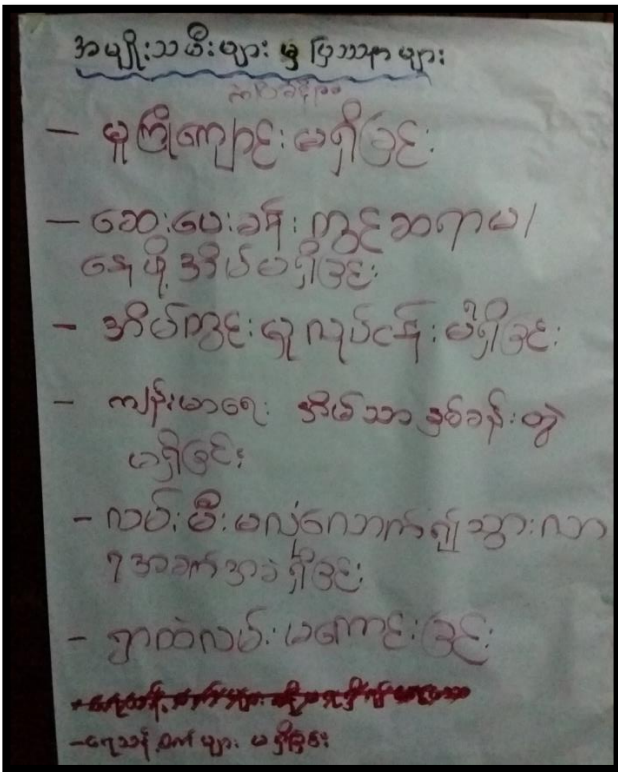 အမျိုးသမီးများ မှ ပြဿနာများ
- မူကြိုကျောင်း မရှိခြင်း
- ဆေးပေးခန်းတွင် ဆရာမ/
နေဖို့ အိမ်မရှိခြင်း
- အိမ်တွင်းမှုလုပ်ငန်း မရှိခြင်း
- ကျန်းမာရေး အိမ်သာ နှစ်ခန်းတွဲ
မရှိခြင်း
- လမ်းမီးမလုံလောက်၍သွားလာ
ရအခက်အခဲရှိခြင်း
- ရွာထဲလမ်းမကောင်းခြင်း
- ရေသန့်စက်များ မရှိခြင်း